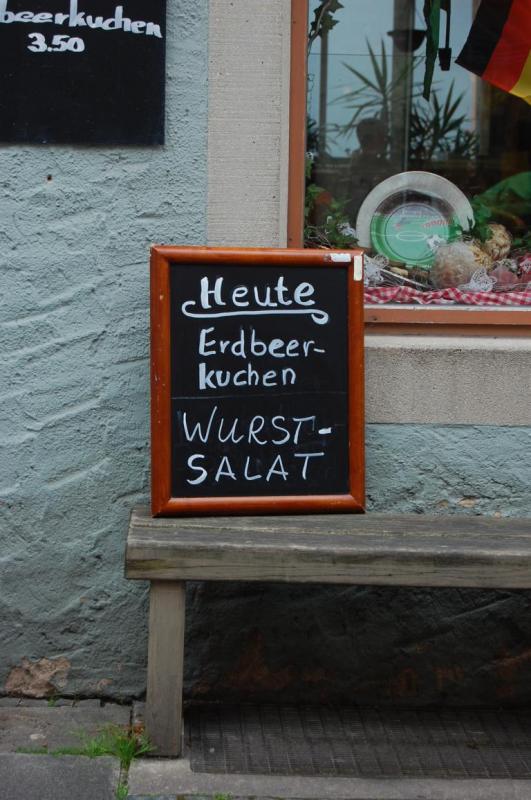 beerkuchen
3.50
Heute
Erdbeer-
kuchen
WURST-
SALAT